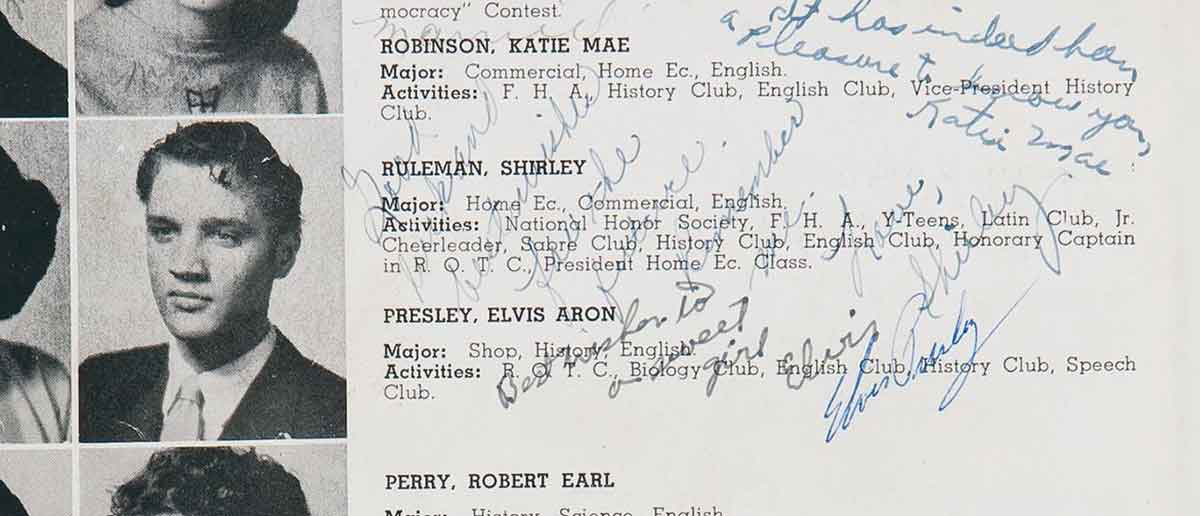 mocracy" Contest.
ROBINSON, KATIE MAE
Major: Commercial, Home Ec., English.
Activities: F. H. A., History Club, English Club, Vice-President History
Club.
It has indeed been
a pleasure to know you,
Katie Mae
RULEMAN, SHIRLEY
Major: Home Ec., Commercial, English.
Activities: National Honor Society, F. H. A., Y-Teens, Latin Club, Jr.
Cheerleader, Sabre Club, History Club, English Club, Honorary Captain
in R. O. T. C., President Home Ec. Class.
Good
wishes
for the
remember
me
Love,
Shirley
PRESLEY, ELVIS ARON
Major: Shop, History, English.
Activities: R. O. T. C., Biology Club, English Club, History Club, Speech
Club.
Best wishes to
a sweet
girl Elvis
Elvis Presley
PERRY, ROBERT EARL
Major: History, Science, English.